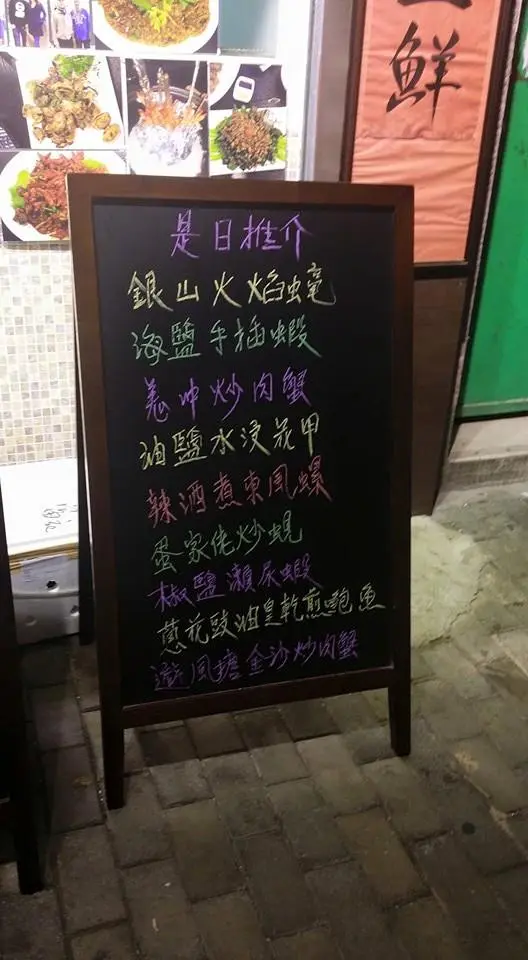 鮮
是日推介
銀山火焰蠔
海鹽手插蝦
羗冲炒肉蟹
油鹽水浸花甲
辣酒煮東風螺
蛋家佬炒蜆
椒鹽瀨尿蝦
蔥花豉油皇乾煎鮑魚
避風塘金沙炒肉蟹